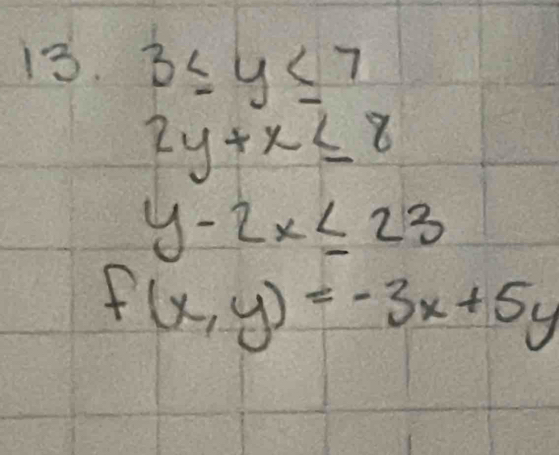 13. 3 ≤ y ≤ 7
2y + x ≤ 8
y - 2x ≤ 23
f(x, y) = -3x + 5y